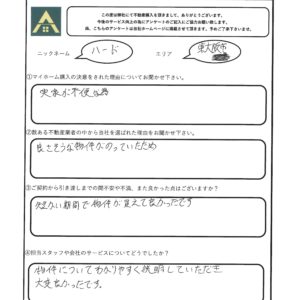 この度は弊社にて不動産購入を頂きまして、ありがとうございます。
今後のサービス向上の為にアンケートのご記入にご協力お願い致します。
尚、こちらのアンケートは当社ホームページに掲載させて頂きます。予めご了承下さいませ。
ニックネーム ハード エリア 東大阪市
①マイホーム購入の決意をされた理由についてお聞かせ下さい。
実家が不便な為
②数ある不動産業者の中から当社を選ばれた理由をお聞かせ下さい。
良さそうな物件がのっていたため
③ご契約から引き渡しまでの間不安や不満、また良かった点はございますか?
短い期間で物件が買えて良かったです
④担当スタッフや会社のサービスについてどうでしたか?
物件についてわかりやすく説明していただき
大変良かったです。